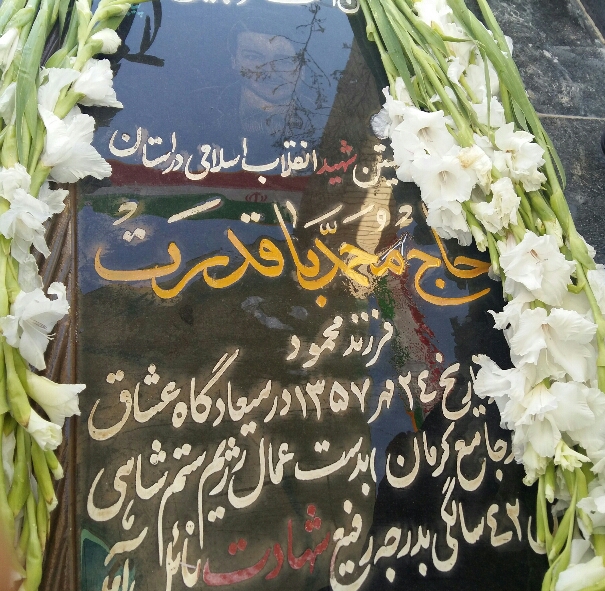 شهید انقلاب اسلامی در استان
حاج محمّد باقدرت
فرزند محمود
۲۴ مهر ۱۳۵۷ در میعادگاه عشاق
جامع کرمان بدست عمال رژیم ستم شاهی
۴۲ سالگی بدرجه رفیع شهادت نائل آمد